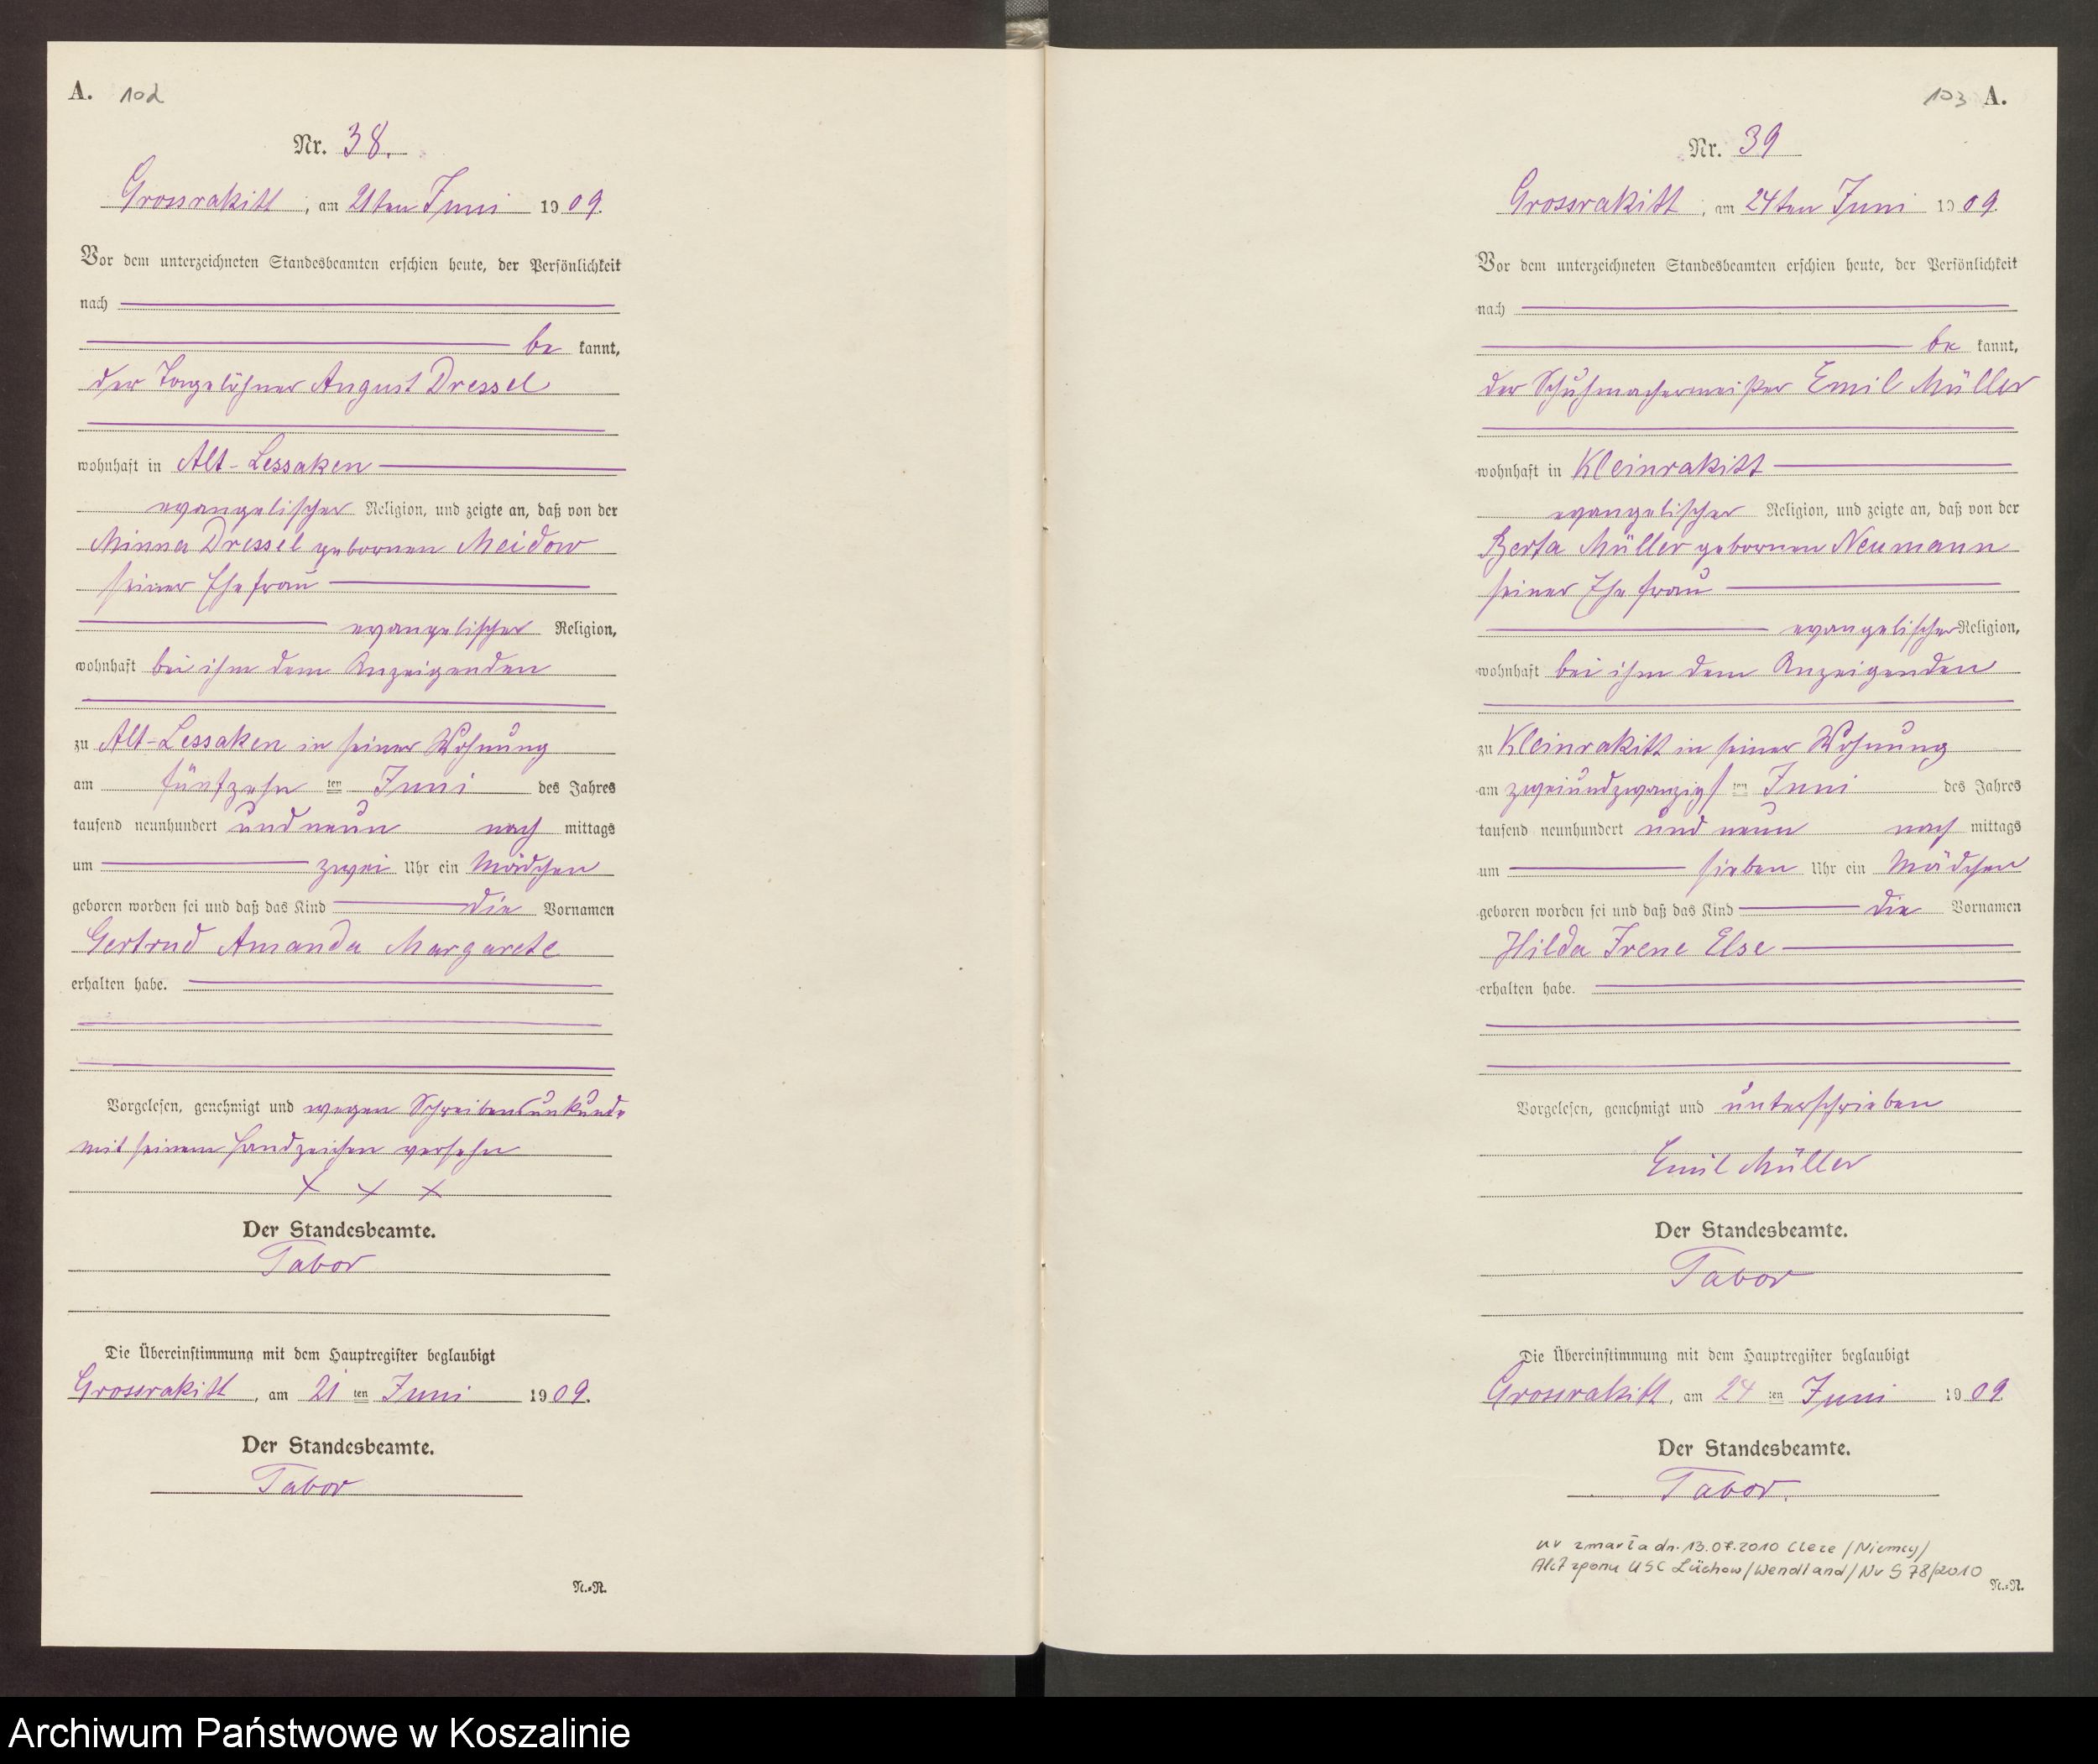 A. 102
Nr. 38.
Grossrakitt, am 21ten Juni 1909.
Vor dem unterzeichneten Standesbeamten erschien heute, der Persönlichkeit
nach
be kannt,
der Tagelöhner August Dressel
wohnhaft in Alt-Lessaken
evangelischer Religion, und zeigte an, daß von der
Minna Dressel gebornen Meidow
seiner Ehefrau
evangelischer Religion,
wohnhaft bei ihm dem Anzeigenden
zu Alt-Lessaken in seiner Wohnung
am fünfzehn ten Juni des Jahres
tausend neunhundert und neun nach mittags
um zwei Uhr ein Mädchen
geboren worden sei und daß das Kind die Vornamen
Gertrud Amanda Margarete
erhalten habe.
Vorgelesen, genehmigt und wegen Schreibensunkunde
mit seinem Handzeichen versehn
x x x
Der Standesbeamte.
Tabor
Die Übereinstimmung mit dem Hauptregister beglaubigt
Grossrakitt, am 21 ten Juni 1909.
Der Standesbeamte.
Tabor
N.=N.
103 A.
Nr. 39
Grossrakitt, am 24ten Juni 1909.
Vor dem unterzeichneten Standesbeamten erschien heute, der Persönlichkeit
nach
be kannt,
der Schuhmachermeister Emil Müller
wohnhaft in Kleinrakitt
evangelischer Religion, und zeigte an, daß von der
Berta Müller gebornen Neumann
seiner Ehefrau
evangelischer Religion,
wohnhaft bei ihm dem Anzeigenden
zu Kleinrakitt in seiner Wohnung
am zweiundzwanzigs ten Juni des Jahres
tausend neunhundert und neun nach mittags
um sieben Uhr ein Mädchen
geboren worden sei und daß das Kind die Vornamen
Hilda Irene Else
erhalten habe.
Vorgelesen, genehmigt und unterschrieben
Emil Müller
Der Standesbeamte.
Tabor
Die Übereinstimmung mit dem Hauptregister beglaubigt
Grossrakitt, am 24 ten Juni 1909.
Der Standesbeamte.
Tabor.
zmarła dn. 13.07.2010 Cleze /Niemcy/
Akt zgonu USC Lüchow /Wendland/ Nr S 78/2010
N.=N.
Archiwum Państwowe w Koszalinie